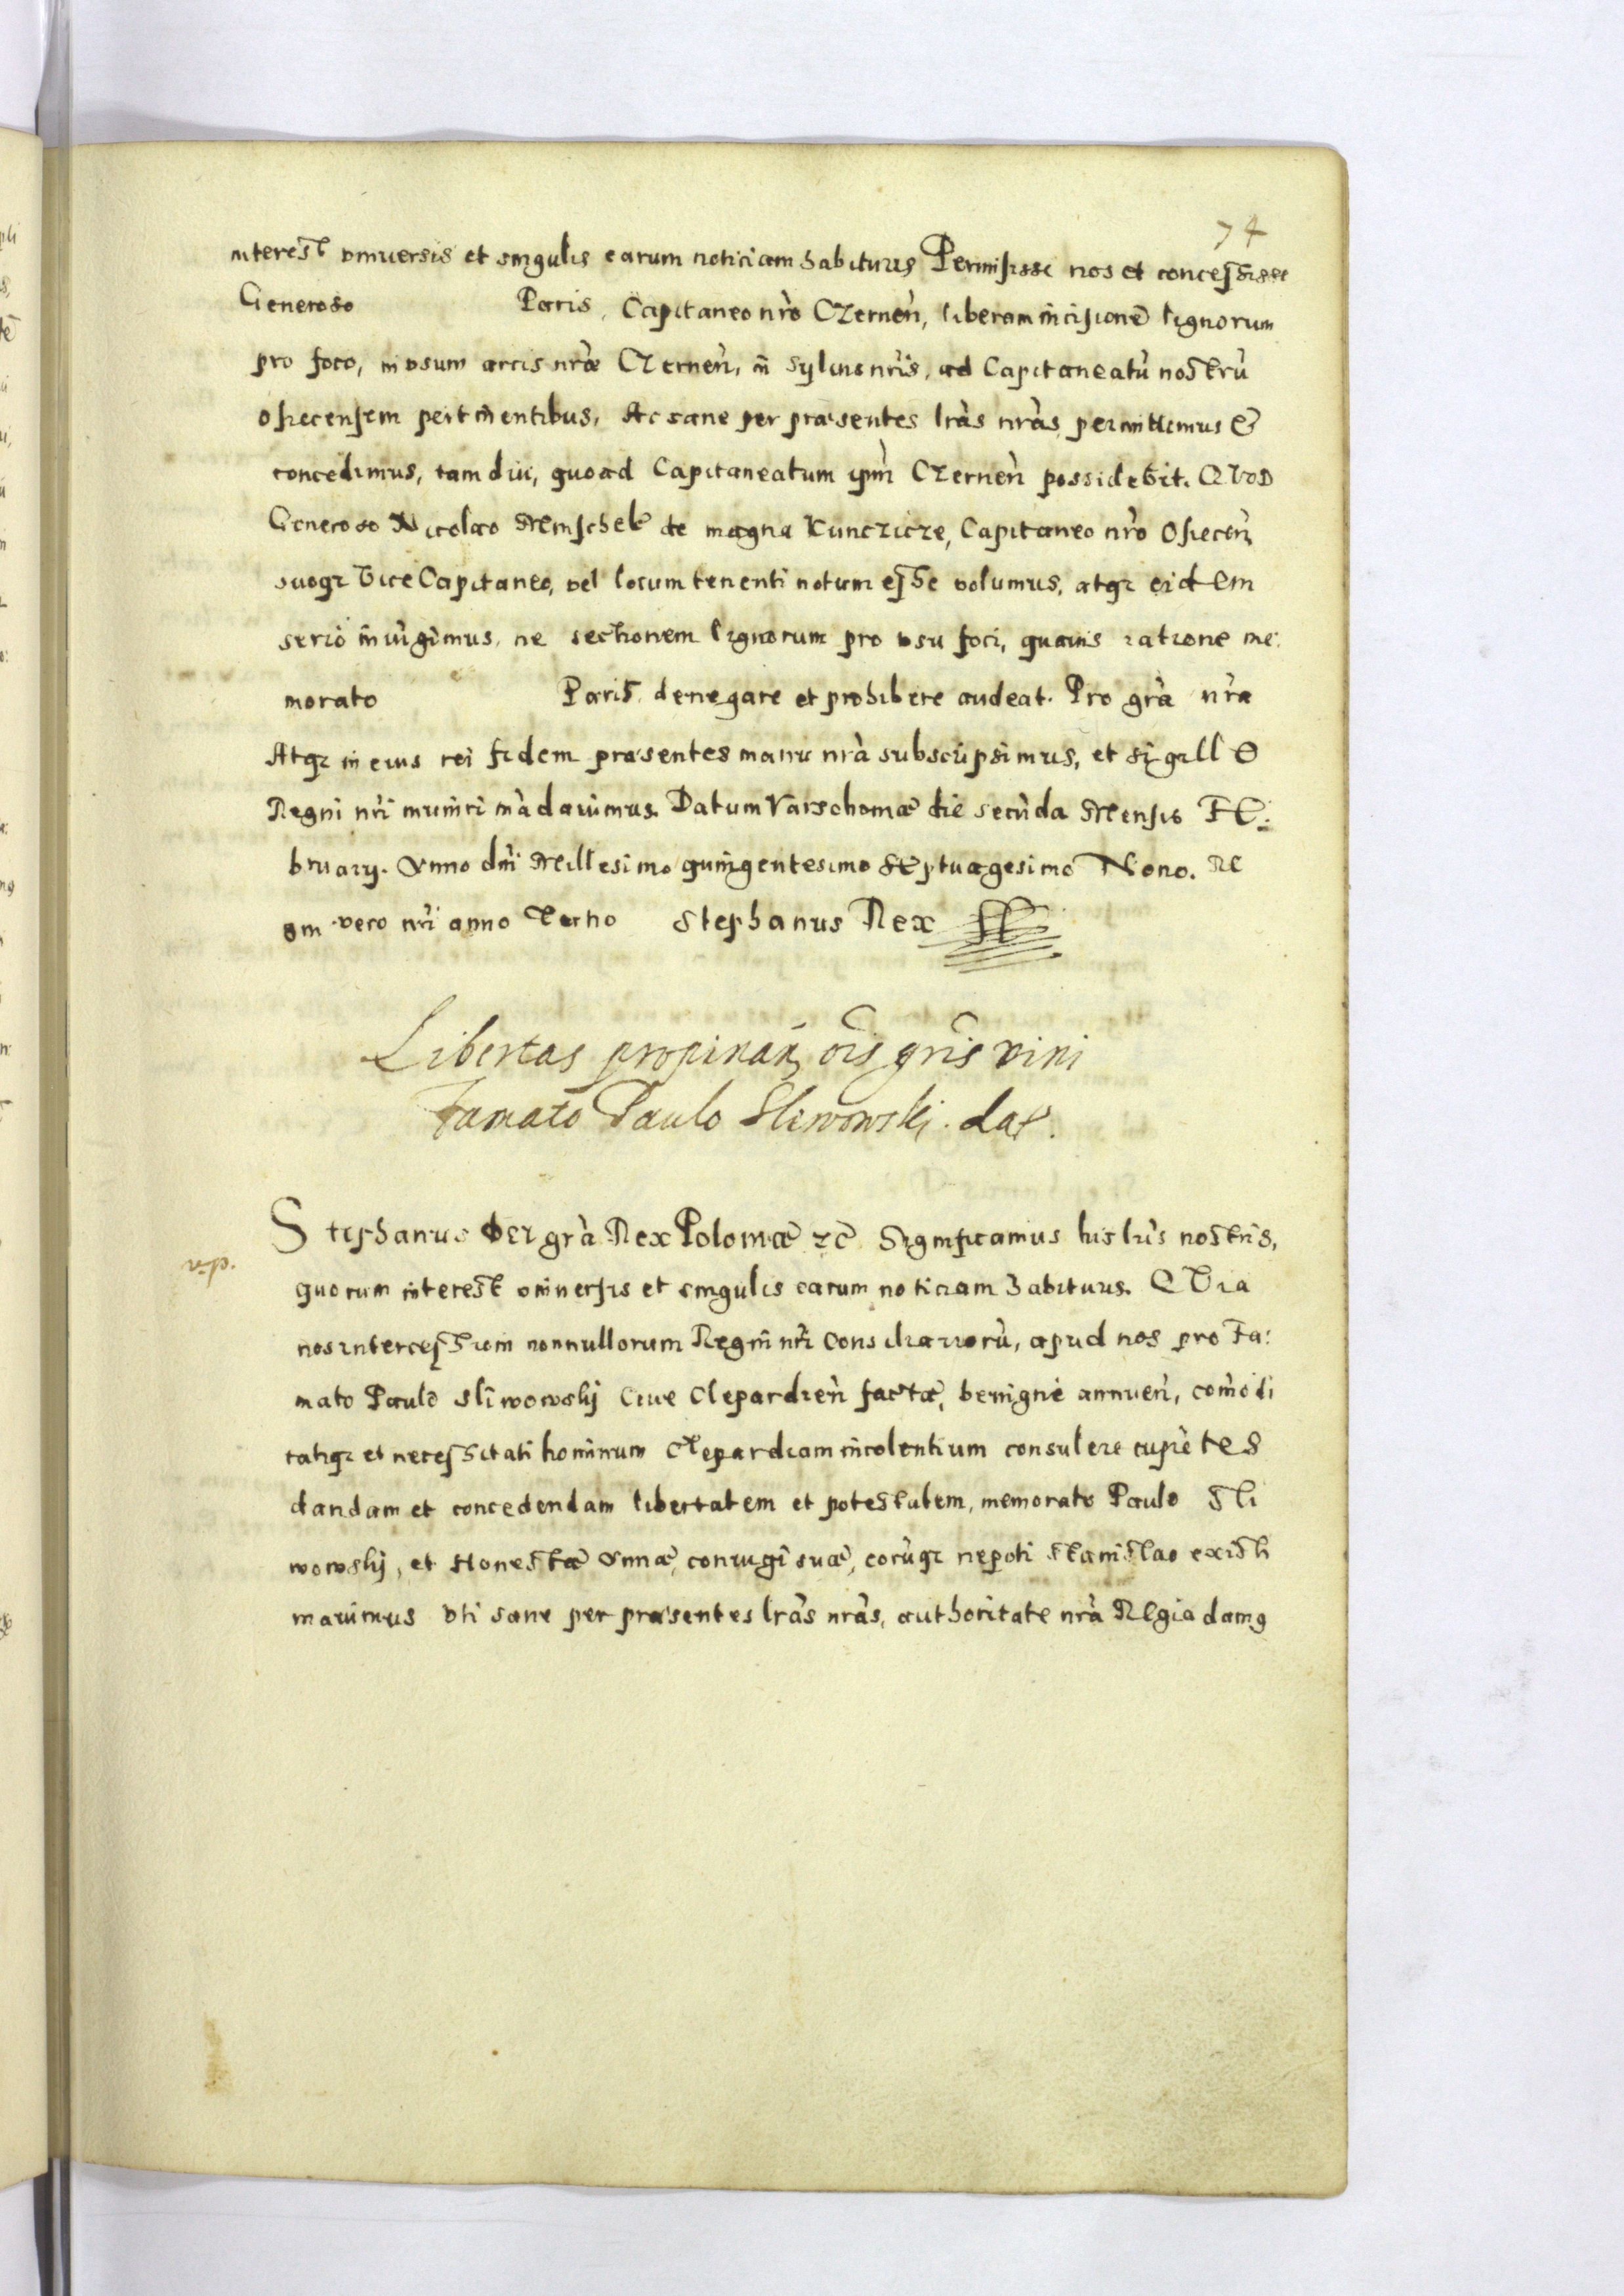 74
interest vniuersis et singulis earum noticiam habituris Permisisse nos et concessisse
Generoso Paris, Capitaneo nr̃o Czernen̄, liberam incisionē lignorum
pro foco, in vsum arcis nr̃æ Czernen̄, in syluis nr̃is, ad Capitaneatū nostrū
osiecensem pertinentibus, Ac sane per præsentes lr̃as nr̃as permittimus &
concedimus, tam diu, quoad Capitaneatum ipm̄ Czernen̄ possidebit. QVOD
Generoso Nicolao Memschek de magna Kunczicze, Capitaneo nr̃o Osiecen̄,
suoqz Vice Capitaneo, vel locum tenenti notum esse volumus, atqz eidem
serio iniūgimus, ne sectionem lignorum pro vsu foci, quauis ratione me:
morato Paris, denegare et prohibere audeat. Pro gr̃a nr̃a
Atqz in eius rei fidem præsentes manu nr̃a subscripsimus, et sigillo
Regni nr̃i muniri mādauimus. Datum Varschouiæ die secūda Mensis Fe:
bruarij. Anno dn̄i Millesimo quingentesimo septuagesimo Nono. Re
gni vero nr̃i anno Tertio Stephanus Rex
Libertas propinan̄ ois gn̄is vini
Famato Paulo Sliwowski dat.
Stephanus Dei gr̃a Rex Poloniæ zc̄ Significamus his lr̃is nostris,
quorum interest vniuersis et singulis earum noticiam habituris. QVia
nos intercessioni nonnullorum Regni nr̃i Consiliariorū, apud nos pro Fa:
mato Paulo Sliwowskij Ciue Clepardien̄ factæ, benigne annuen̄, cōmodi
tatiqz et necessitati hominum Clepardiam incolentium consulere cupiētes
dandam et concedendam libertatem et potestatem, memorato Paulo Sli
wowskij, et Honestæ Annæ, coniugi suæ, eorūqz nepoti Stanislao existi
mauimus vti sane per præsentes lr̃as nr̃as, authoritate nr̃a Regia damꝯ